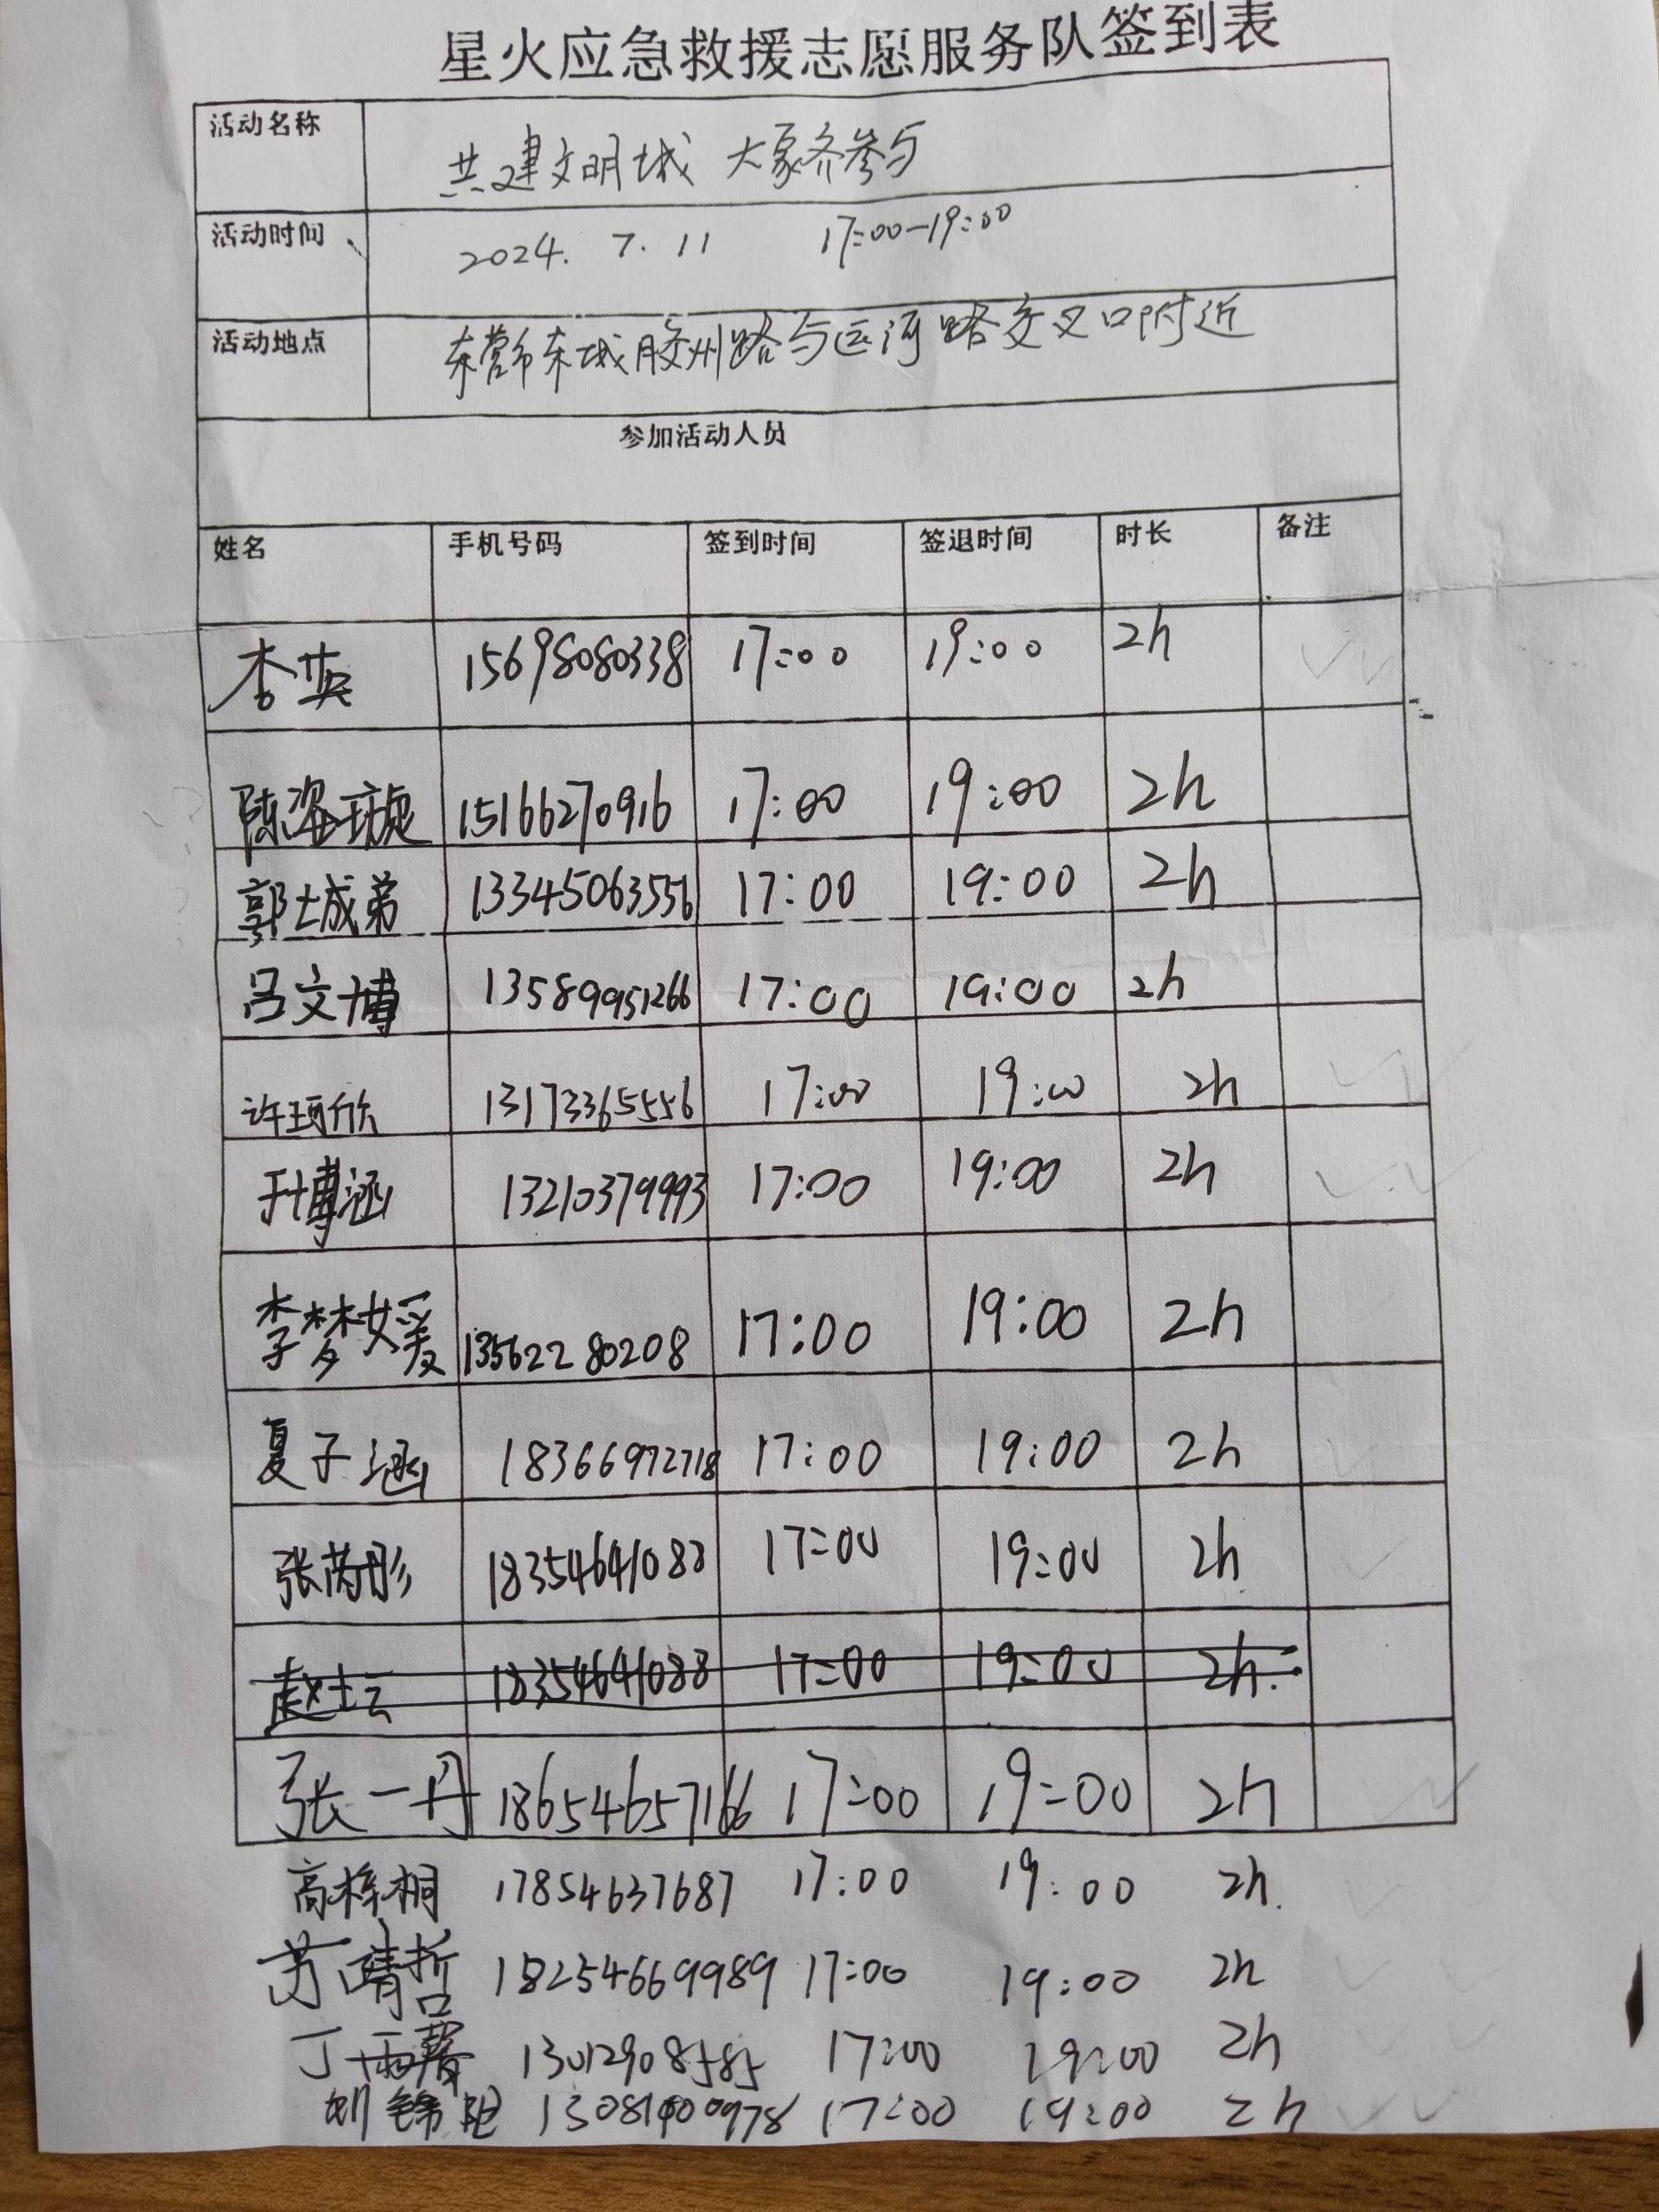 星火应急救援志愿服务队签到表
活动名称 共建文明城 大家齐参与
活动时间 2024. 7. 11 17:00-19:00
活动地点 东营市东城胶州路与运河路交叉口附近
参加活动人员
姓名 手机号码 签到时间 签退时间 时长 备注
李英 15698080338 17:00 19:00 2h
陈姿璇 15166270916 17:00 19:00 2h
郭城弟 13345063556 17:00 19:00 2h
吕文博 13589951266 17:00 19:00 2h
许珂欣 13173365556 17:00 19:00 2h
于博涵 13210379993 17:00 19:00 2h
李梦媛 13562280208 17:00 19:00 2h
夏子涵 18366972718 17:00 19:00 2h
张芮彤 18354641088 17:00 19:00 2h
赵坛 18354641088 17:00 19:00 2h.
张一丹 18654657166 17:00 19:00 2h
高梓桐 17854637687 17:00 19:00 2h.
苏靖哲 18254669989 17:00 19:00 2h
丁雨馨 13012908585 17:00 19:00 2h
刘锦 17:00 19:00 2h